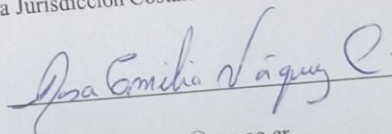 a Jurisdicción
Rosa Emilia Vásquez C.